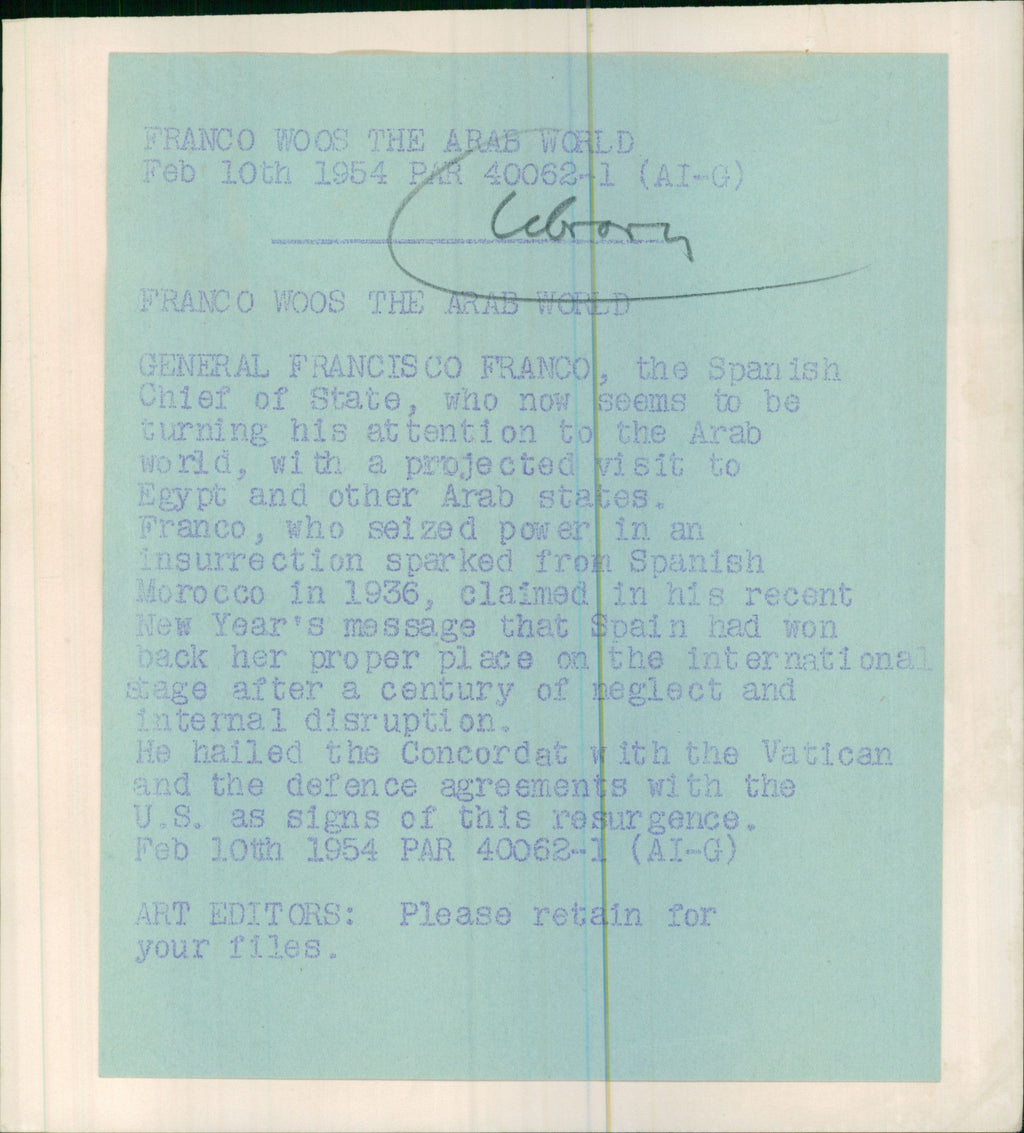 FRANCO WOOS THE ARAB WORLD
Feb 10th 1954 PAR 40062-1 (AI-G)
Library
FRANCO WOOS THE ARAB WORLD
GENERAL FRANCISCO FRANCO, the Spanish
Chief of State, who now seems to be
turning his attention to the Arab
world, with a projected visit to
Egypt and other Arab states.
Franco, who seized power in an
insurrection sparked from Spanish
Morocco in 1936, claimed in his recent
New Year's message that Spain had won
back her proper place on the international
stage after a century of neglect and
internal disruption.
He hailed the Concordat with the Vatican
and the defence agreements with the
U.S. as signs of this resurgence.
Feb 10th 1954 PAR 40062-1 (AI-G)
ART EDITORS: Please retain for
your files.